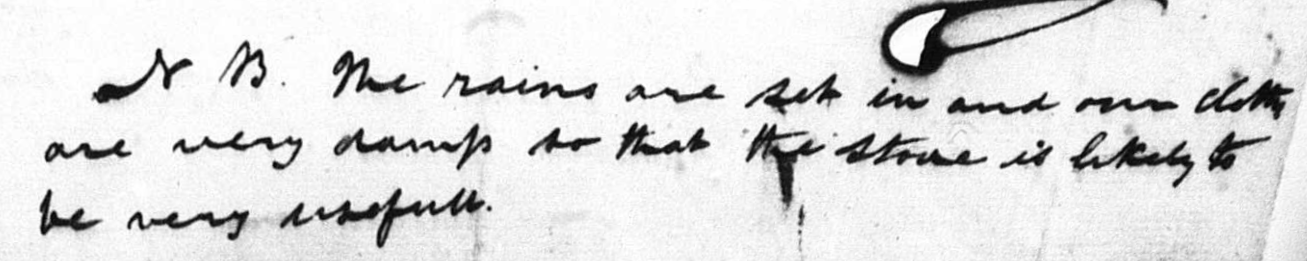 N B. The rains are set in and our cloths
are very damp so that the stove is likely to
be very usefull.